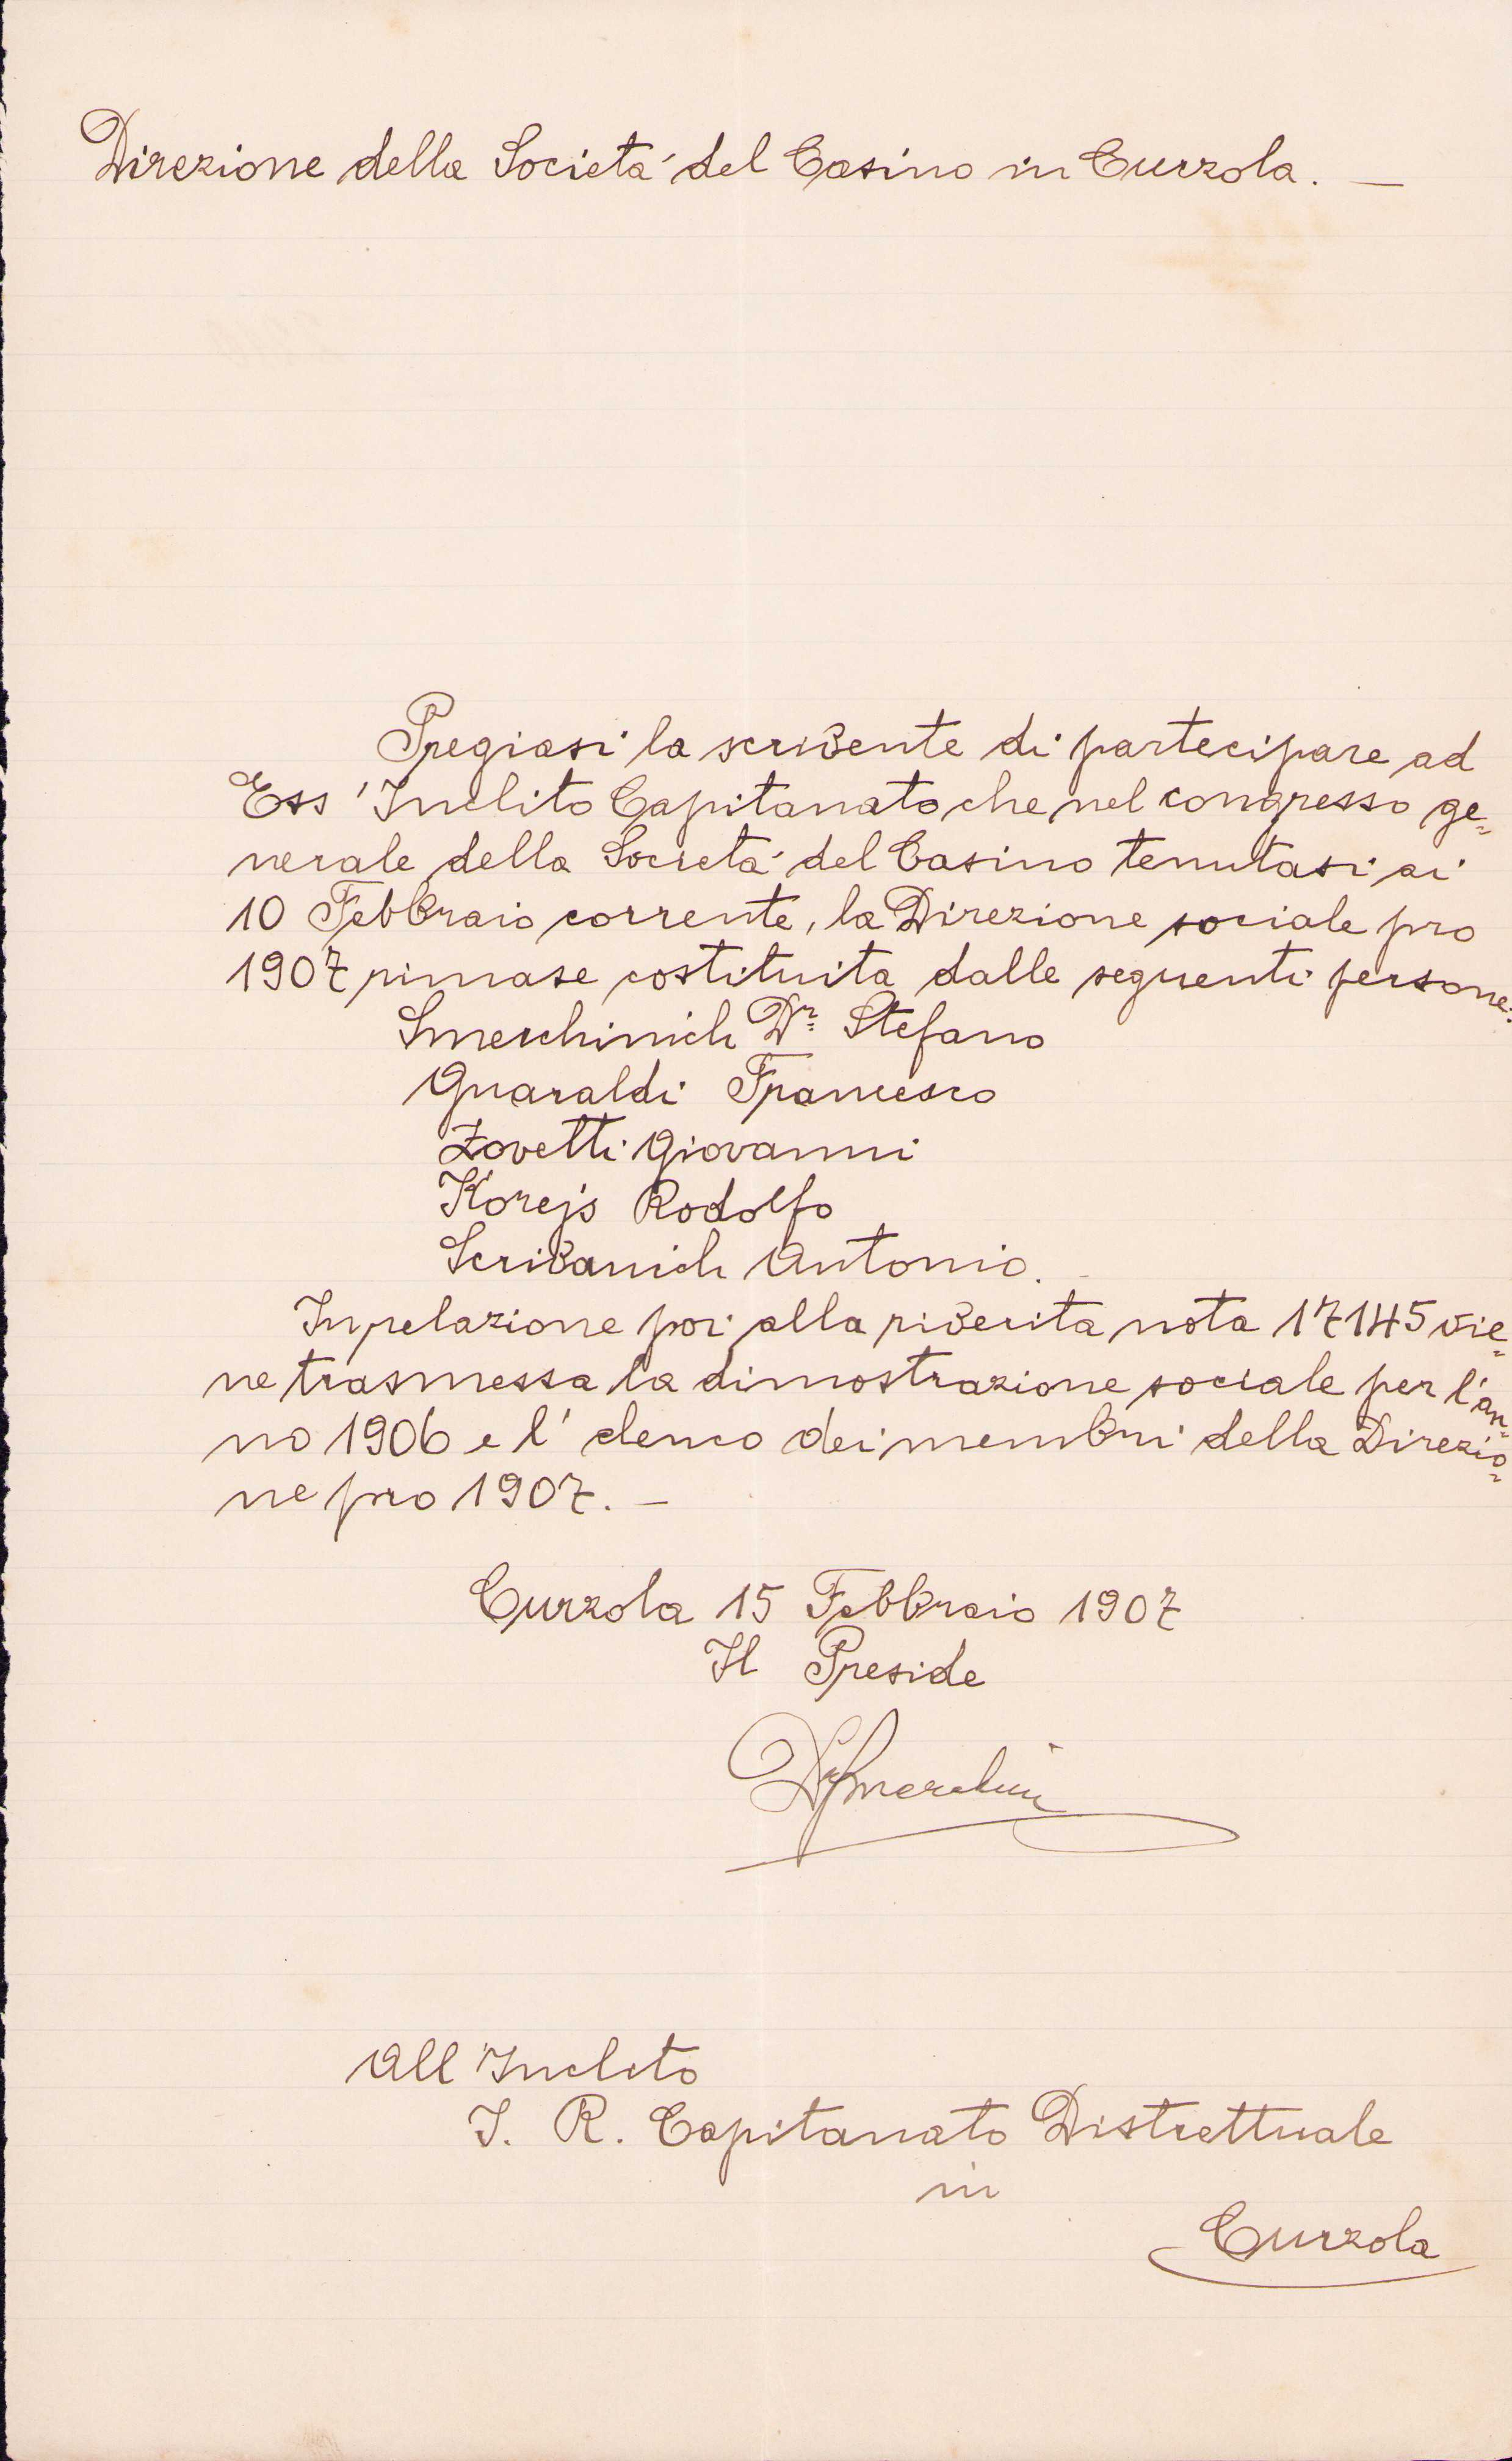 Direzione della Società del Casino in Curzola. —
Pregiasi la scrivente di partecipare ad
Ess' Inclito Capitanato che nel congresso ge=
nerale della Società del Casino tenutasi ai
10 Febbraio corrente, la Direzione sociale pro
1907 rimase costituita dalle seguenti persone:
Smerchinich Dr. Stefano
Guaraldi Francesco
Zovetti Giovanni
Korejs Rodolfo
Scrivanich Antonio.
In relazione poi alla riverita nota 17145 vie=
ne trasmessa la dimostrazione sociale per l'an=
no 1906 e l' elenco dei membri della Direzio=
ne pro 1907. —
Curzola 15 Febbraio 1907
Il Preside
All'Inclito
I. R. Capitanato Distrettuale
in
Curzola